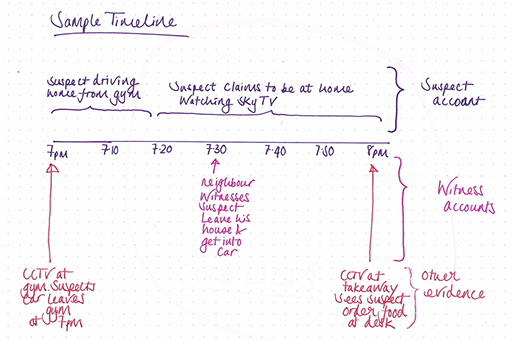 Sample Timeline
Suspect driving
home from gym
Suspect claims to be at home
Watching SkyTV
Suspect
account
7pm 7·10 7·20 7·30 7·40 7·50 8pm
neighbour
Witnesses
Suspect
Leave his
house &
get into
Car
Witness
accounts
CCTV at
gym. Suspects
Car leaves
gym
at 7pm
CCTV at
takeaway
Sees suspect
order food
at desk
Other
evidence